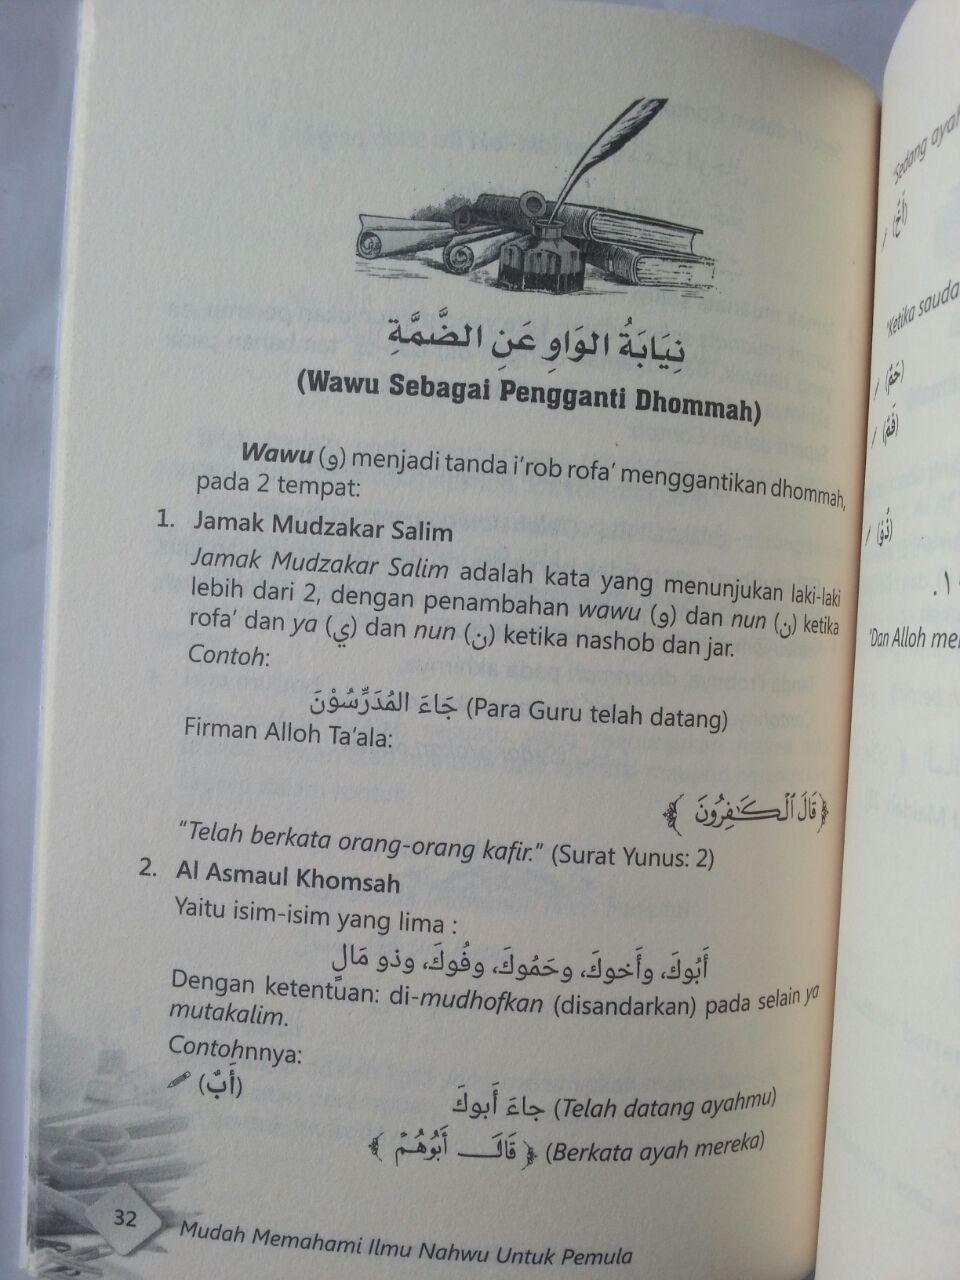 نِيَابَةُ الوَاوِ عَنِ الضَّمَّةِ
(Wawu Sebagai Pengganti Dhommah)
Wawu (و) menjadi tanda i'rob rofa' menggantikan dhommah,
pada 2 tempat:
1. Jamak Mudzakar Salim
Jamak Mudzakar Salim adalah kata yang menunjukan laki-laki
lebih dari 2, dengan penambahan wawu (و) dan nun (ن) ketika
rofa' dan ya (ي) dan nun (ن) ketika nashob dan jar.
Contoh:
جَاءَ المُدَرِّسُوْنَ (Para Guru telah datang)
Firman Alloh Ta'ala:
﴿ قَالَ ٱلْكَـٰفِرُونَ ﴾
"Telah berkata orang-orang kafir." (Surat Yunus: 2)
2. Al Asmaul Khomsah
Yaitu isim-isim yang lima :
أَبُوكَ، وأَخوكَ، وحَمُوكَ، وفُوكَ، وذو مَالٍ
Dengan ketentuan: di-mudhofkan (disandarkan) pada selain ya
mutakalim.
Contohnnya:
(أَبٌ)
جاءَ أَبوكَ (Telah datang ayahmu)
﴿ قَالَ أَبُوْهُمْ ﴾ (Berkata ayah mereka)
32
Mudah Memahami Ilmu Nahwu Untuk Pemula
'Sedang ayah
(أَخٌ)
'Ketika sauda
(حَمٌ)
(فَمٌ)
(ذُوْ)
١.
'Dan Alloh me